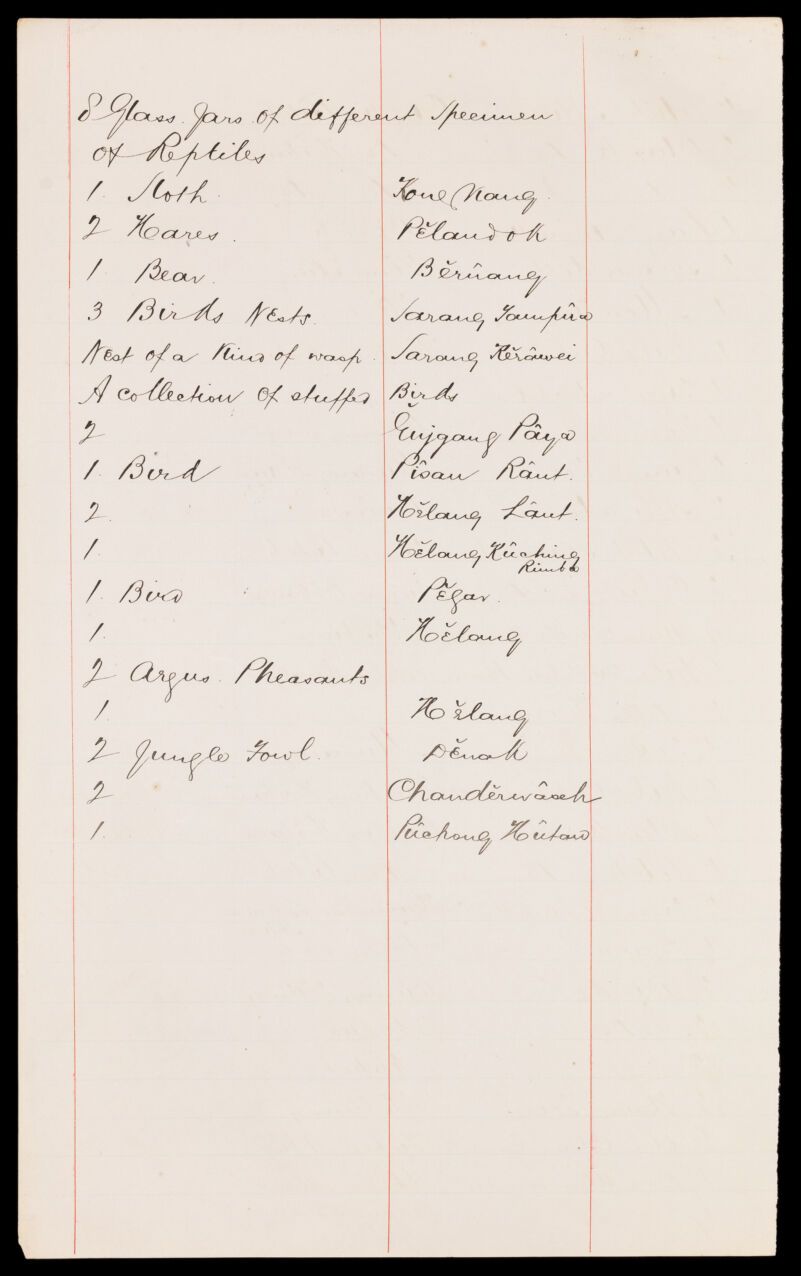 8 Glass Jars of different Specimen
of Reptiles
1. Sloth. Kong Kang.
2 Hares. Pĕlandok
1 Bear. Bĕrûang
3 Birds Nests. Sarang Tampûa
Nest of a Kind of wasp. Sarang Kĕrâwei
A collection of stuffed Birds
2 Ĕnggang Pâya
1. Bird Pîsau Râut.
2. Hĕlang Lâut.
1. Hĕlang Kûching
Rimba
1. Bird Pĕgar.
1. Hĕlang
2 Argus Pheasants
1. Hĕlang
2 Jungle Fowl. Dĕnak
2 Chandĕrwâseh
1. Pûchong Hûtan